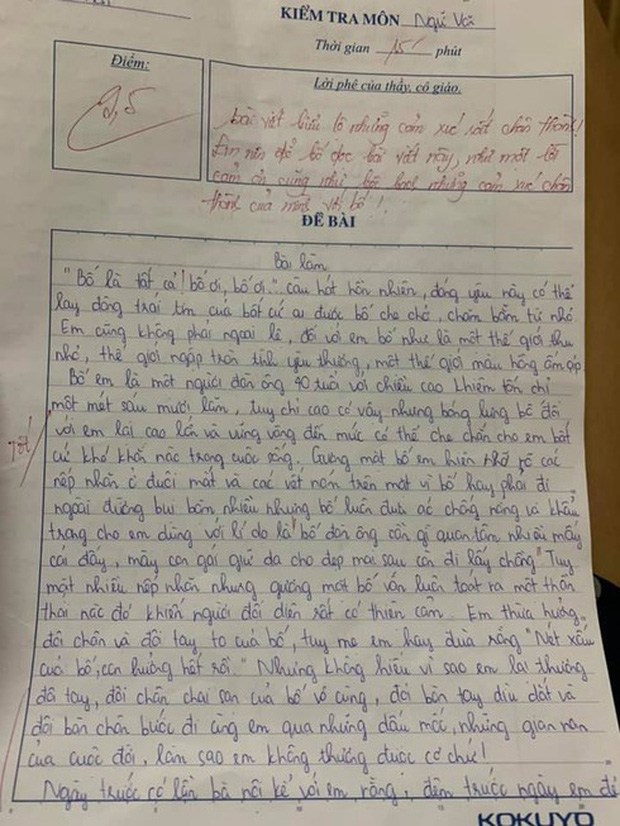 KIỂM TRA MÔN Ngữ Văn
Thời gian 15' phút
Điểm:
9,5
Lời phê của thầy, cô giáo.
Bài viết biểu lộ những cảm xúc rất chân thành!
Em nên để bố đọc bài viết này, như một lời
cảm ơn cũng như bộc bạch những cảm xúc chân
thành của mình với bố!
ĐỀ BÀI
Bài làm
"Bố là tất cả! bố ơi, bố ơi.." câu hát hồn nhiên, đáng yêu này có thể
lay động trái tim của bất cứ ai được bố che chở, chăm bẵm từ nhỏ
Em cũng không phải ngoại lệ, đối với em bố như là một thế giới thu
nhỏ, thế giới ngập tràn tình yêu thương, một thế giới màu hồng ấm áp.
Bố em là một người đàn ông 40 tuổi với chiều cao khiêm tốn chỉ
một mét sáu mươi lăm, tuy chỉ cao có vậy nhưng bóng lưng bố đối
với em lại cao lớn và vững vàng đến mức có thể che chắn cho em bất
tốt
cứ khó khăn nào trong cuộc sống. Gương mặt bố em hiện rõ các
nếp nhăn ở đuôi mắt và các vết nám trên mặt vì bố hay phải đi
ngoài đường bụi bặm nhiều nhưng bố luôn đưa áo chống nắng và khẩu
trang cho em dùng với lí do là "bố đàn ông cần gì quan tâm nhiều mấy
cái đấy, mày con gái giữ da cho đẹp mai sau còn đi lấy chồng" Tuy
mặt nhiều nếp nhăn nhưng gương mặt bố vẫn luôn toát ra một thần
thái nào đó khiến người đối diện rất có thiện cảm. Em thừa hưởng
đôi chân và đôi tay to của bố, tuy mẹ em hay đùa rằng "Nét xấu
của bố, con hưởng hết rồi." Nhưng không hiểu vì sao em lại thương
đôi tay, đôi chân chai sạn của bố vô cùng, đôi bàn tay dìu dắt và
đôi bàn chân bước đi cùng em qua những dấu mốc, những gian nan
của cuộc đời, làm sao em không thương được cơ chứ!
Ngày trước có lần bà nội kể với em rằng, đêm trước ngày em đẻ
KOKUYO